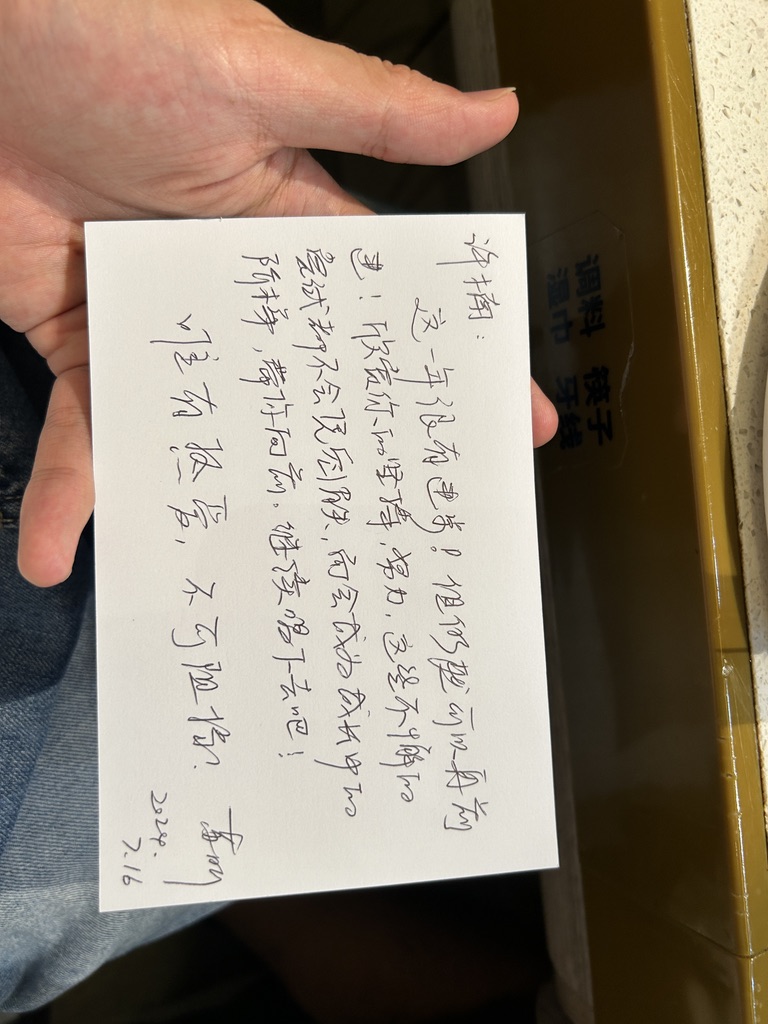 调料 筷子
湿巾 牙线
许楠：
这一年很有进步！但仍然可以再前
进！欣赏你的坚持，努力，这些不懈的
尝试都不会凭空消失，而会成为成长中的
阶梯，带你向前。继续唱下去吧！
唯有热爱，不可阻挡！
2024.
7.16